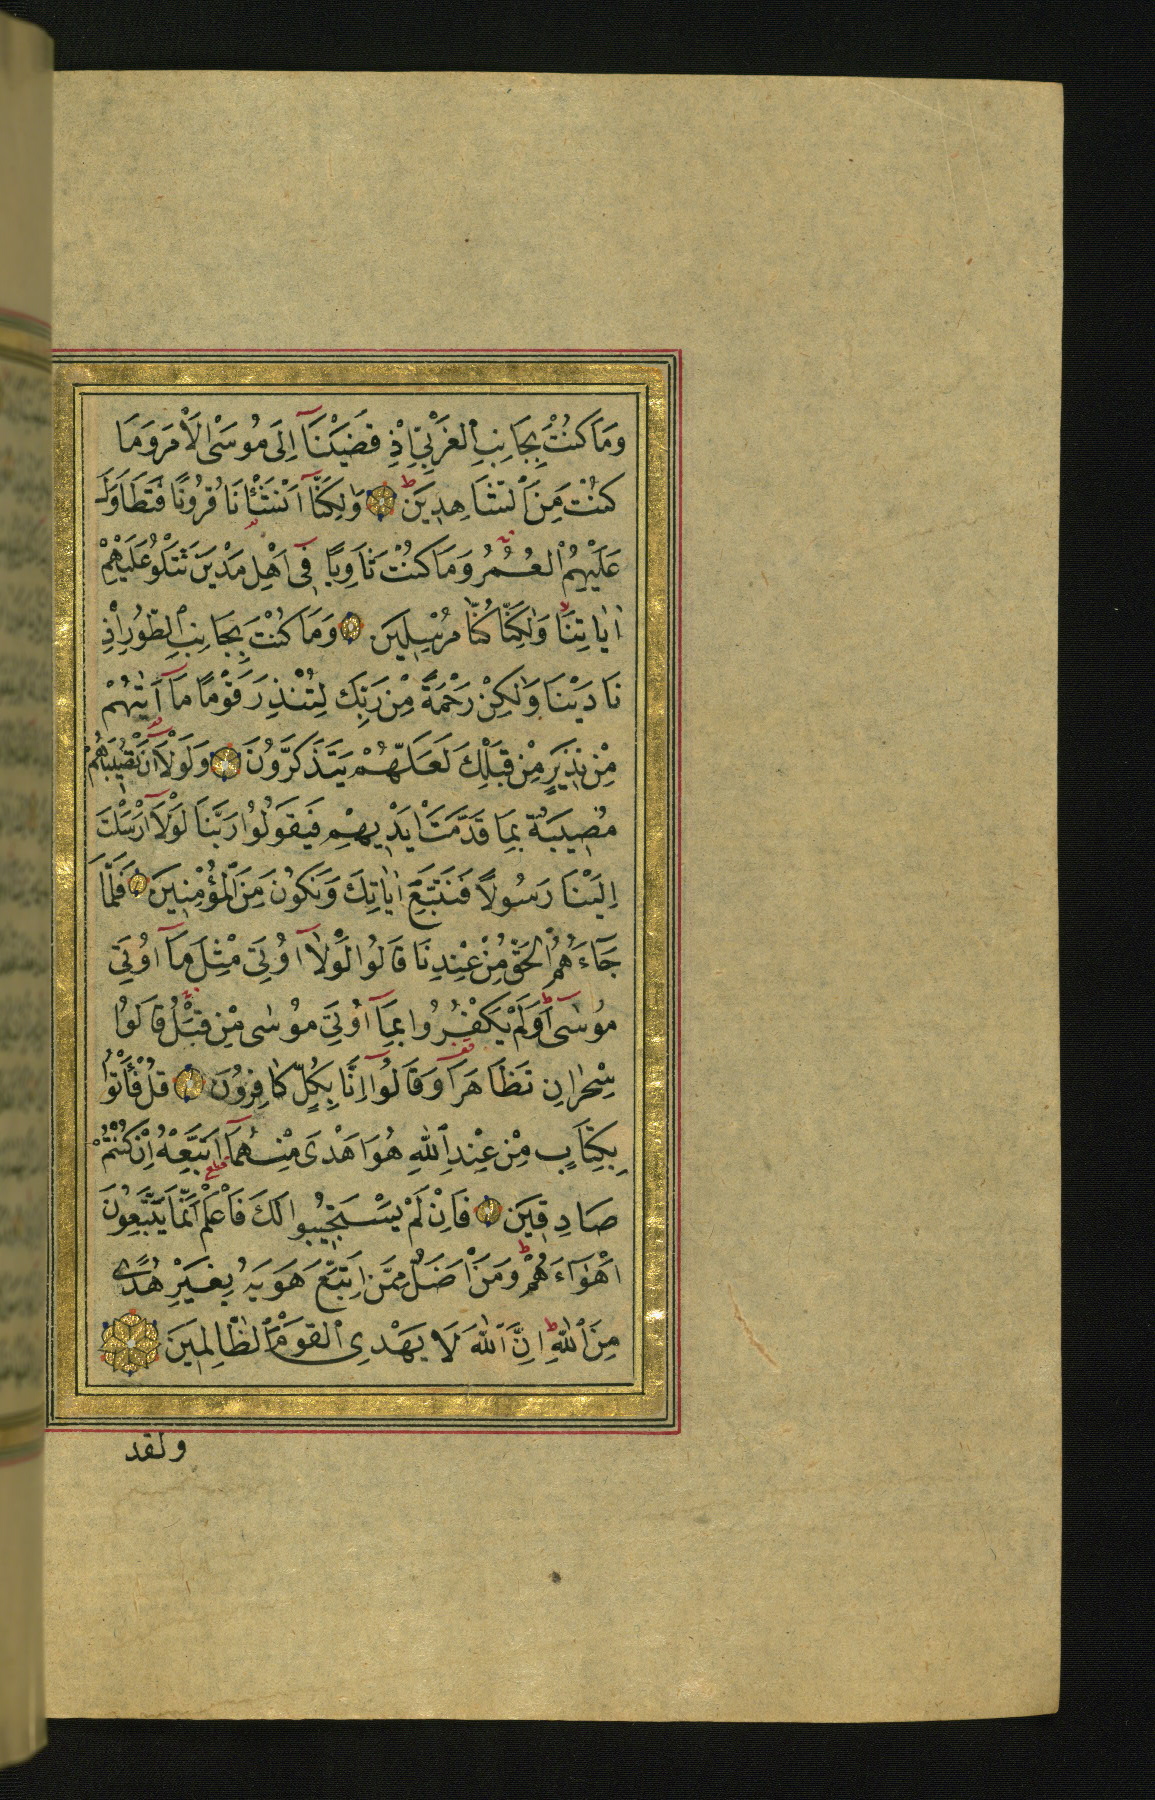 وَمَا كُنْتَ بِجَانِبِ الْغَرْبِيِّ اِذْ قَضَيْنَآ اِلَى مُوسَى الْاَمْرَ وَمَا
كُنْتَ مِنَ الشَّاهِدِينَ ط وَلٰكِنَّآ اَنْشَأْنَا قُرُونًا فَتَطَاوَلَ
عَلَيْهِمُ الْعُمُرُ وَمَا كُنْتَ ثَاوِيًا فِٓى اَهْلِ مَدْيَنَ تَتْلُو عَلَيْهِمْ
اٰيَاتِنَا وَلٰكِنَّا كُنَّا مُرْسِلِينَ وَمَا كُنْتَ بِجَانِبِ الطُّورِ اِذْ
نَادَيْنَا وَلٰكِنْ رَحْمَةً مِنْ رَبِّكَ لِتُنْذِرَ قَوْمًا مَآ اَتٰيهُمْ
مِنْ نَذِيرٍ مِنْ قَبْلِكَ لَعَلَّهُمْ يَتَذَكَّرُونَ وَلَوْلَآ اَنْ تُصِيبَهُمْ
مُصِيبَةٌ بِمَا قَدَّمَتْ اَيْدِيهِمْ فَيَقُولُوا رَبَّنَا لَوْلَآ اَرْسَلْتَ
اِلَيْنَا رَسُولًا فَنَتَّبِعَ اٰيَاتِكَ وَنَكُونَ مِنَ الْمُؤْمِنِينَ فَلَمَّا
جَآءَهُمُ الْحَقُّ مِنْ عِنْدِنَا قَالُوا لَوْلَآ اُوتِىَ مِثْلَ مَآ اُوتِىَ
مُوسٰى ط اَوَلَمْ يَكْفُرُوا بِمَآ اُوتِىَ مُوسٰى مِنْ قَبْلُ قَالُوا
سِحْرَانِ تَظَاهَرَا وَقَالُوٓا اِنَّا بِكُلٍّ كَافِرُونَ قُلْ فَأْتُوا
بِكِتَابٍ مِنْ عِنْدِ اللّٰهِ هُوَ اَهْدٰى مِنْهُمَآ اَتَّبِعْهُ اِنْ كُنْتُمْ
صَادِقِينَ فَاِنْ لَمْ يَسْتَجِيبُوا لَكَ فَاعْلَمْ اَنَّمَا يَتَّبِعُونَ
اَهْوَآءَهُمْ ط وَمَنْ اَضَلُّ مِمَّنِ اتَّبَعَ هَوٰيهُ بِغَيْرِ هُدًى
مِنَ اللّٰهِ ط اِنَّ اللّٰهَ لَا يَهْدِى الْقَوْمَ الظَّالِمِينَ
ولقد